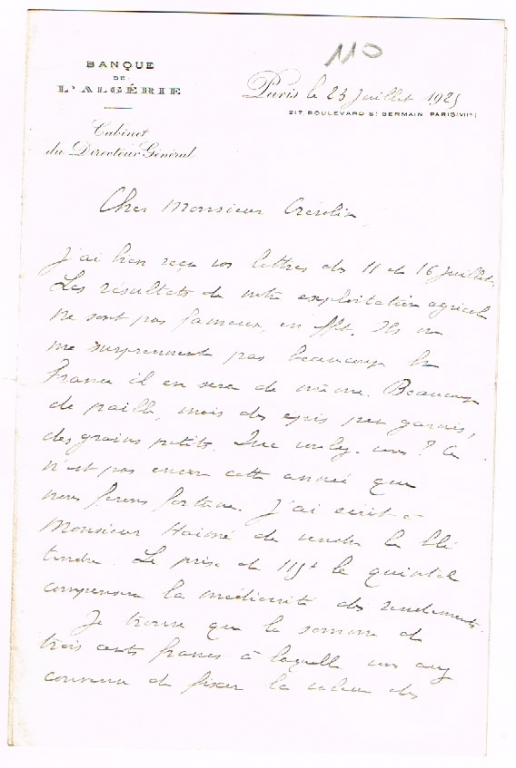 110
BANQUE
DE
L'ALGÉRIE
Cabinet
du Directeur Général
Paris le 23 Juillet 1925
217, BOULEVARD ST GERMAIN PARIS (VIIe)
Cher Monsieur
J'ai bien reçu vos lettres des 11 et 16 Juillet.
Les résultats de notre exploitation agricole
ne sont pas fameux, en effet. Ils ne
me surprennent pas beaucoup. En
France il en sera de même. Beaucoup
de paille, mais des épis peu garnis,
des grains petits. Que voulez-vous ? Ce
n'est pas encore cette année que
nous ferons fortune. J'ai écrit à
Monsieur de vendre le blé
tendre. Le prix de 115f le quintal
compensera la médiocrité des rendements.
Je trouve que la somme de
trois cents francs à laquelle vous avez
convenu de fixer la valeur des